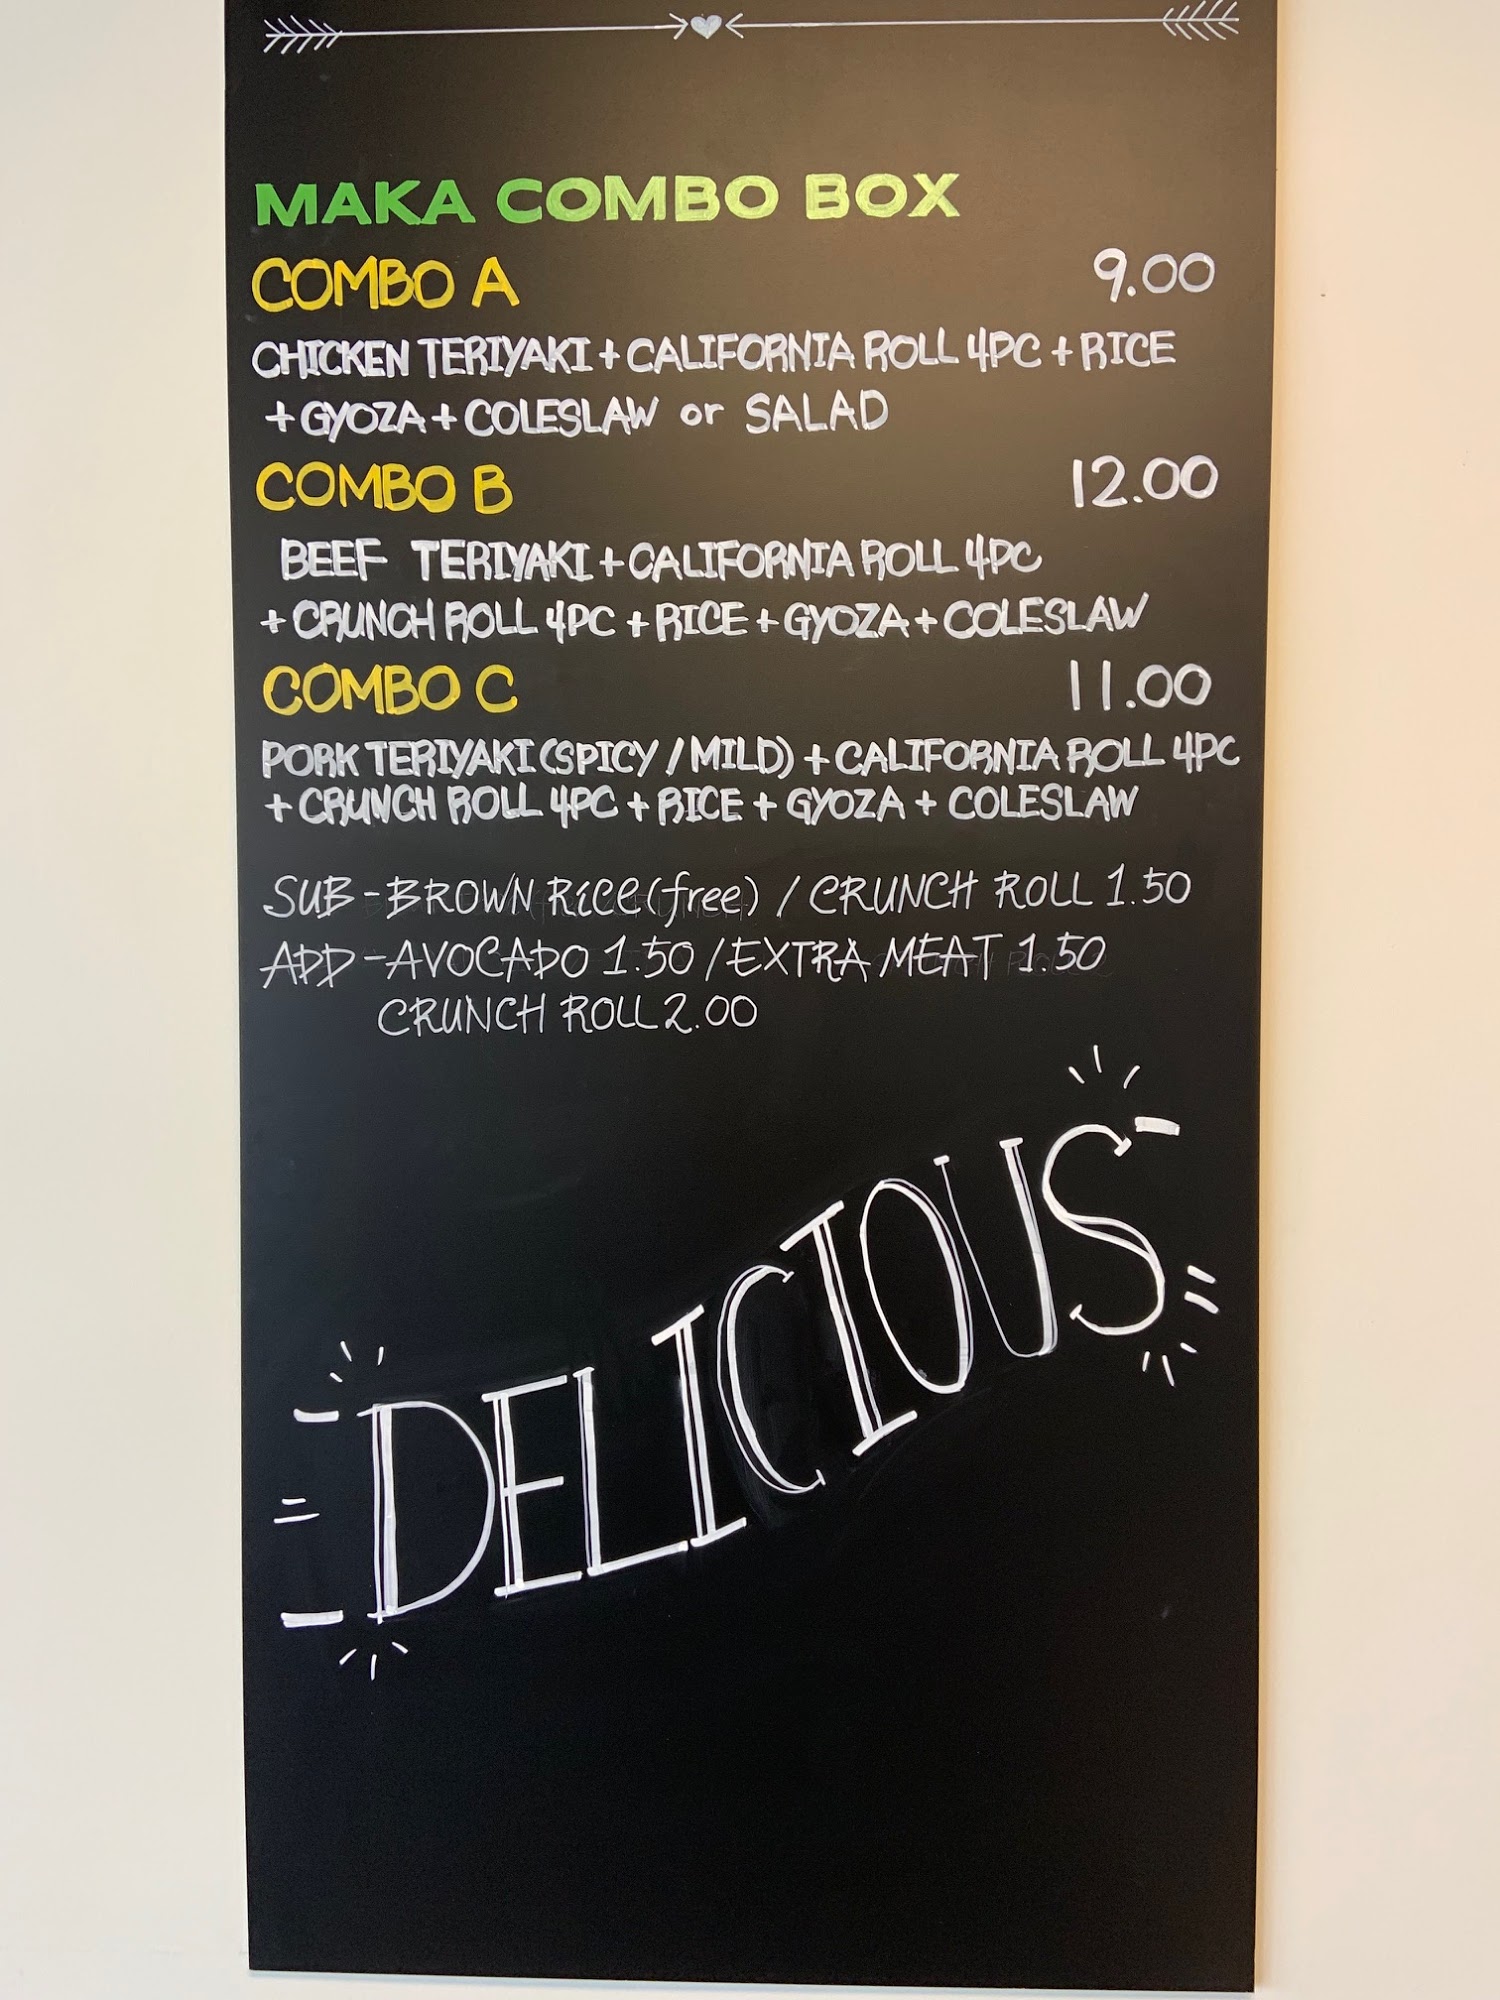 MAKA COMBO BOX
COMBO A 9.00
CHICKEN TERIYAKI + CALIFORNIA ROLL 4PC + RICE
+ GYOZA + COLESLAW or SALAD
COMBO B 12.00
BEEF TERIYAKI + CALIFORNIA ROLL 4PC
+ CRUNCH ROLL 4PC + RICE + GYOZA + COLESLAW
COMBO C 11.00
PORK TERIYAKI (SPICY / MILD) + CALIFORNIA ROLL 4PC
+ CRUNCH ROLL 4PC + RICE + GYOZA + COLESLAW
SUB - BROWN RICE (free) / CRUNCH ROLL 1.50
ADD - AVOCADO 1.50 / EXTRA MEAT 1.50
CRUNCH ROLL 2.00
DELICIOUS